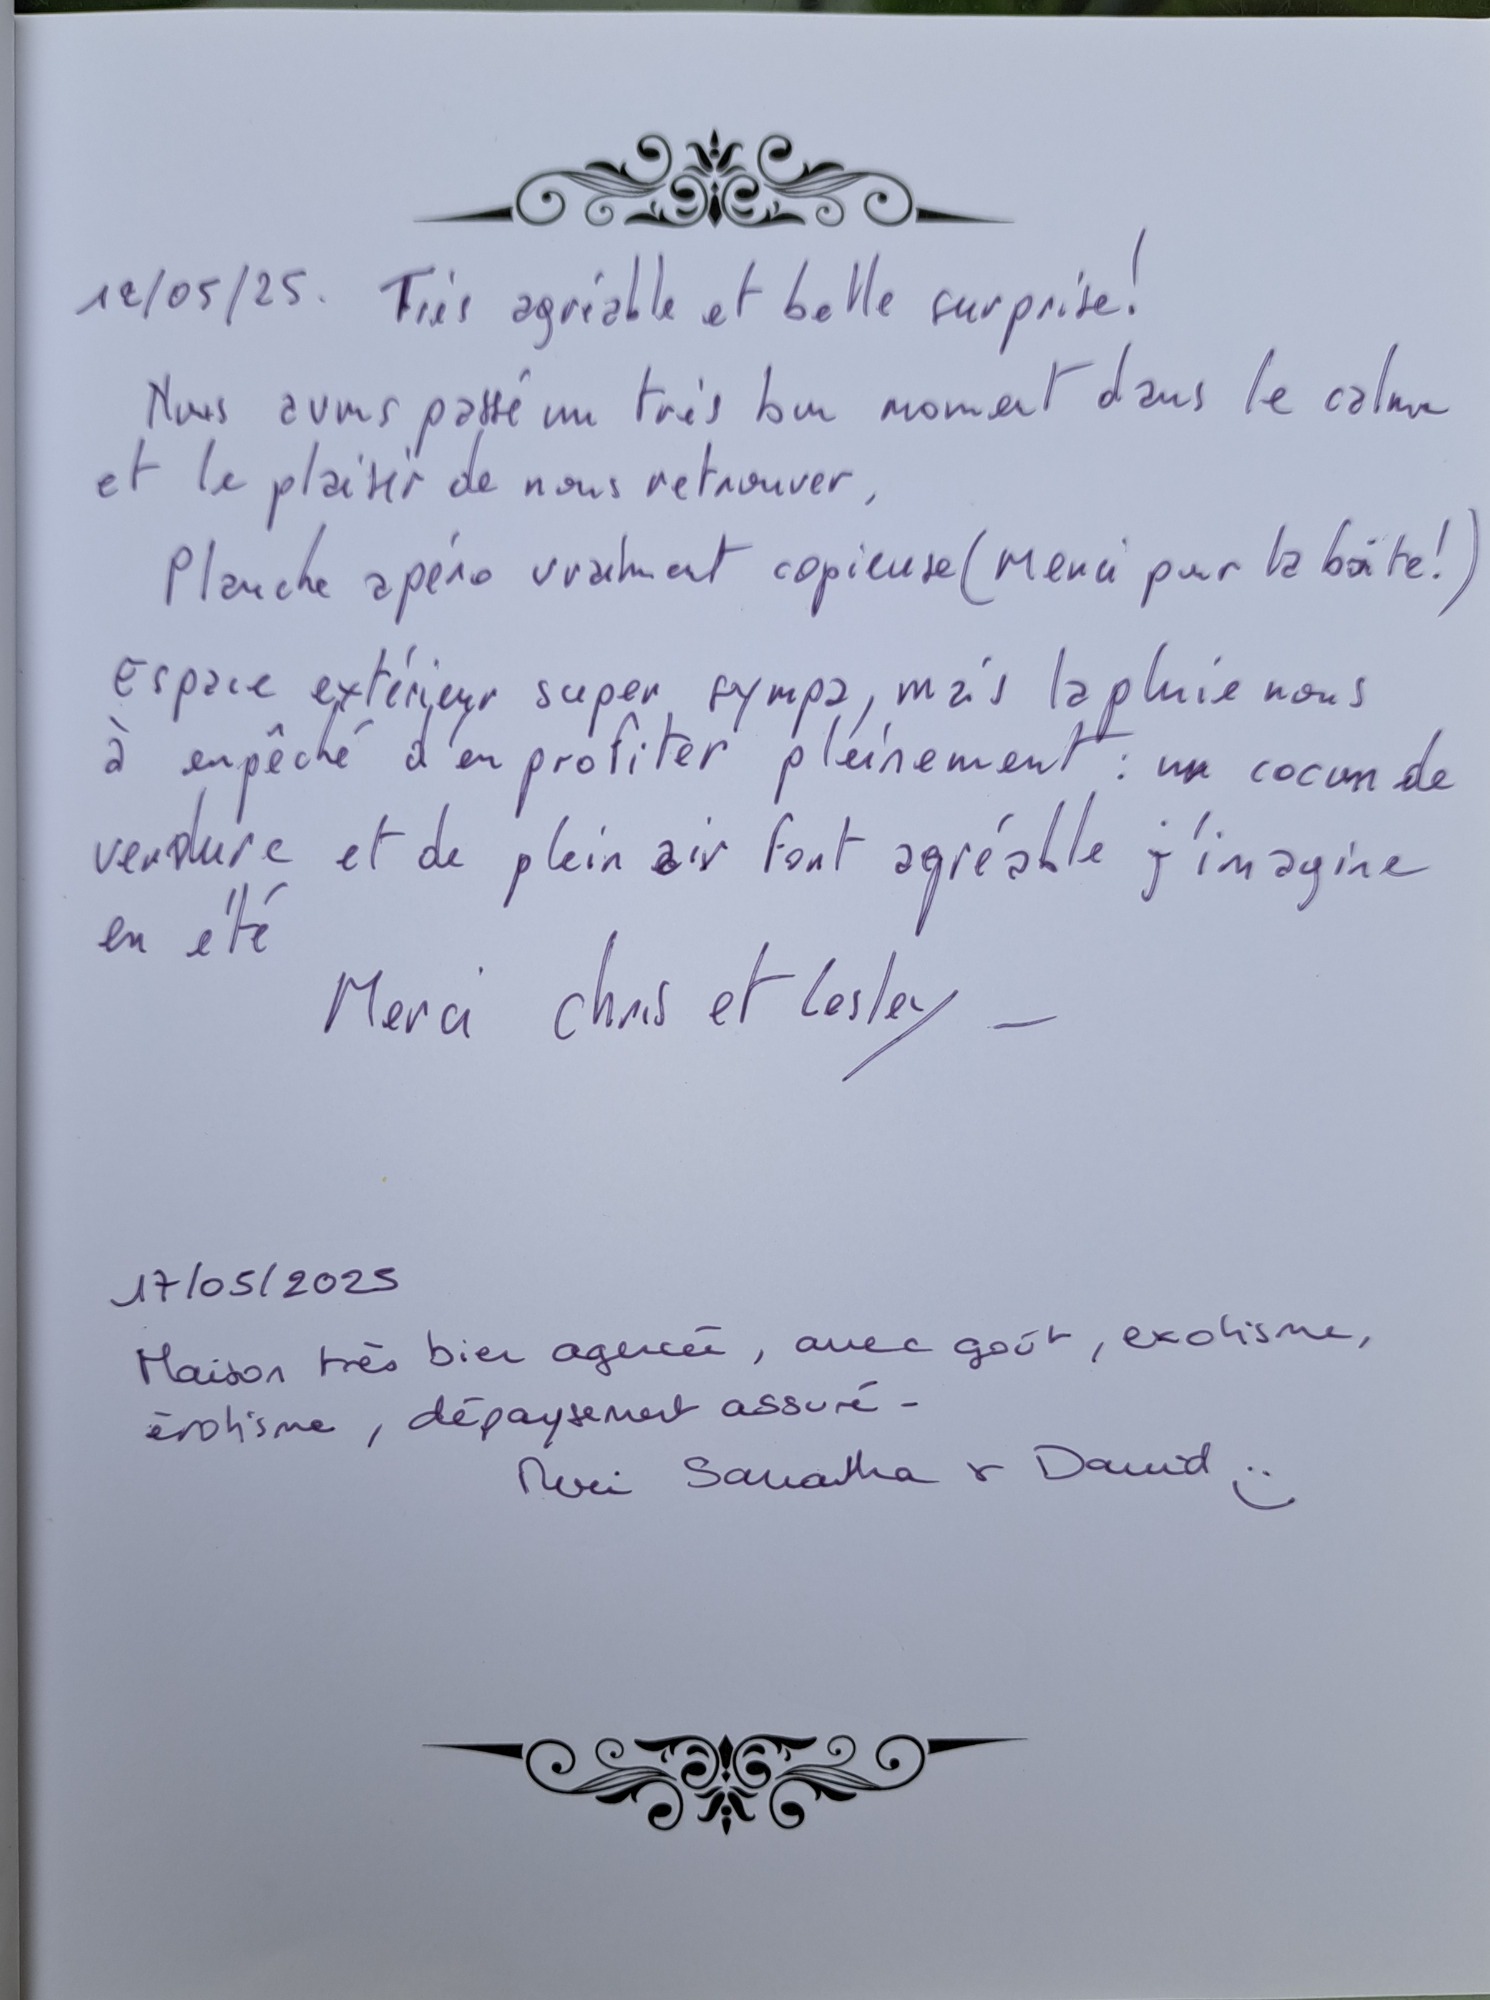 12/05/25. Très agréable et belle surprise!
Nous avons passé un très bon moment dans le calme
et le plaisir de nous retrouver,
Planche apéro vraiment copieuse (Merci pour la boîte!)
Espace extérieur super sympa, mais la pluie nous
à empêché d'en profiter pleinement : un cocon de
verdure et de plein air fort agréable j'imagine
en été
Merci Chris et Lesley _
17/05/2025
Maison très bien agencée, avec goût, exotisme,
érotisme, dépaysement assuré -
Merci & David